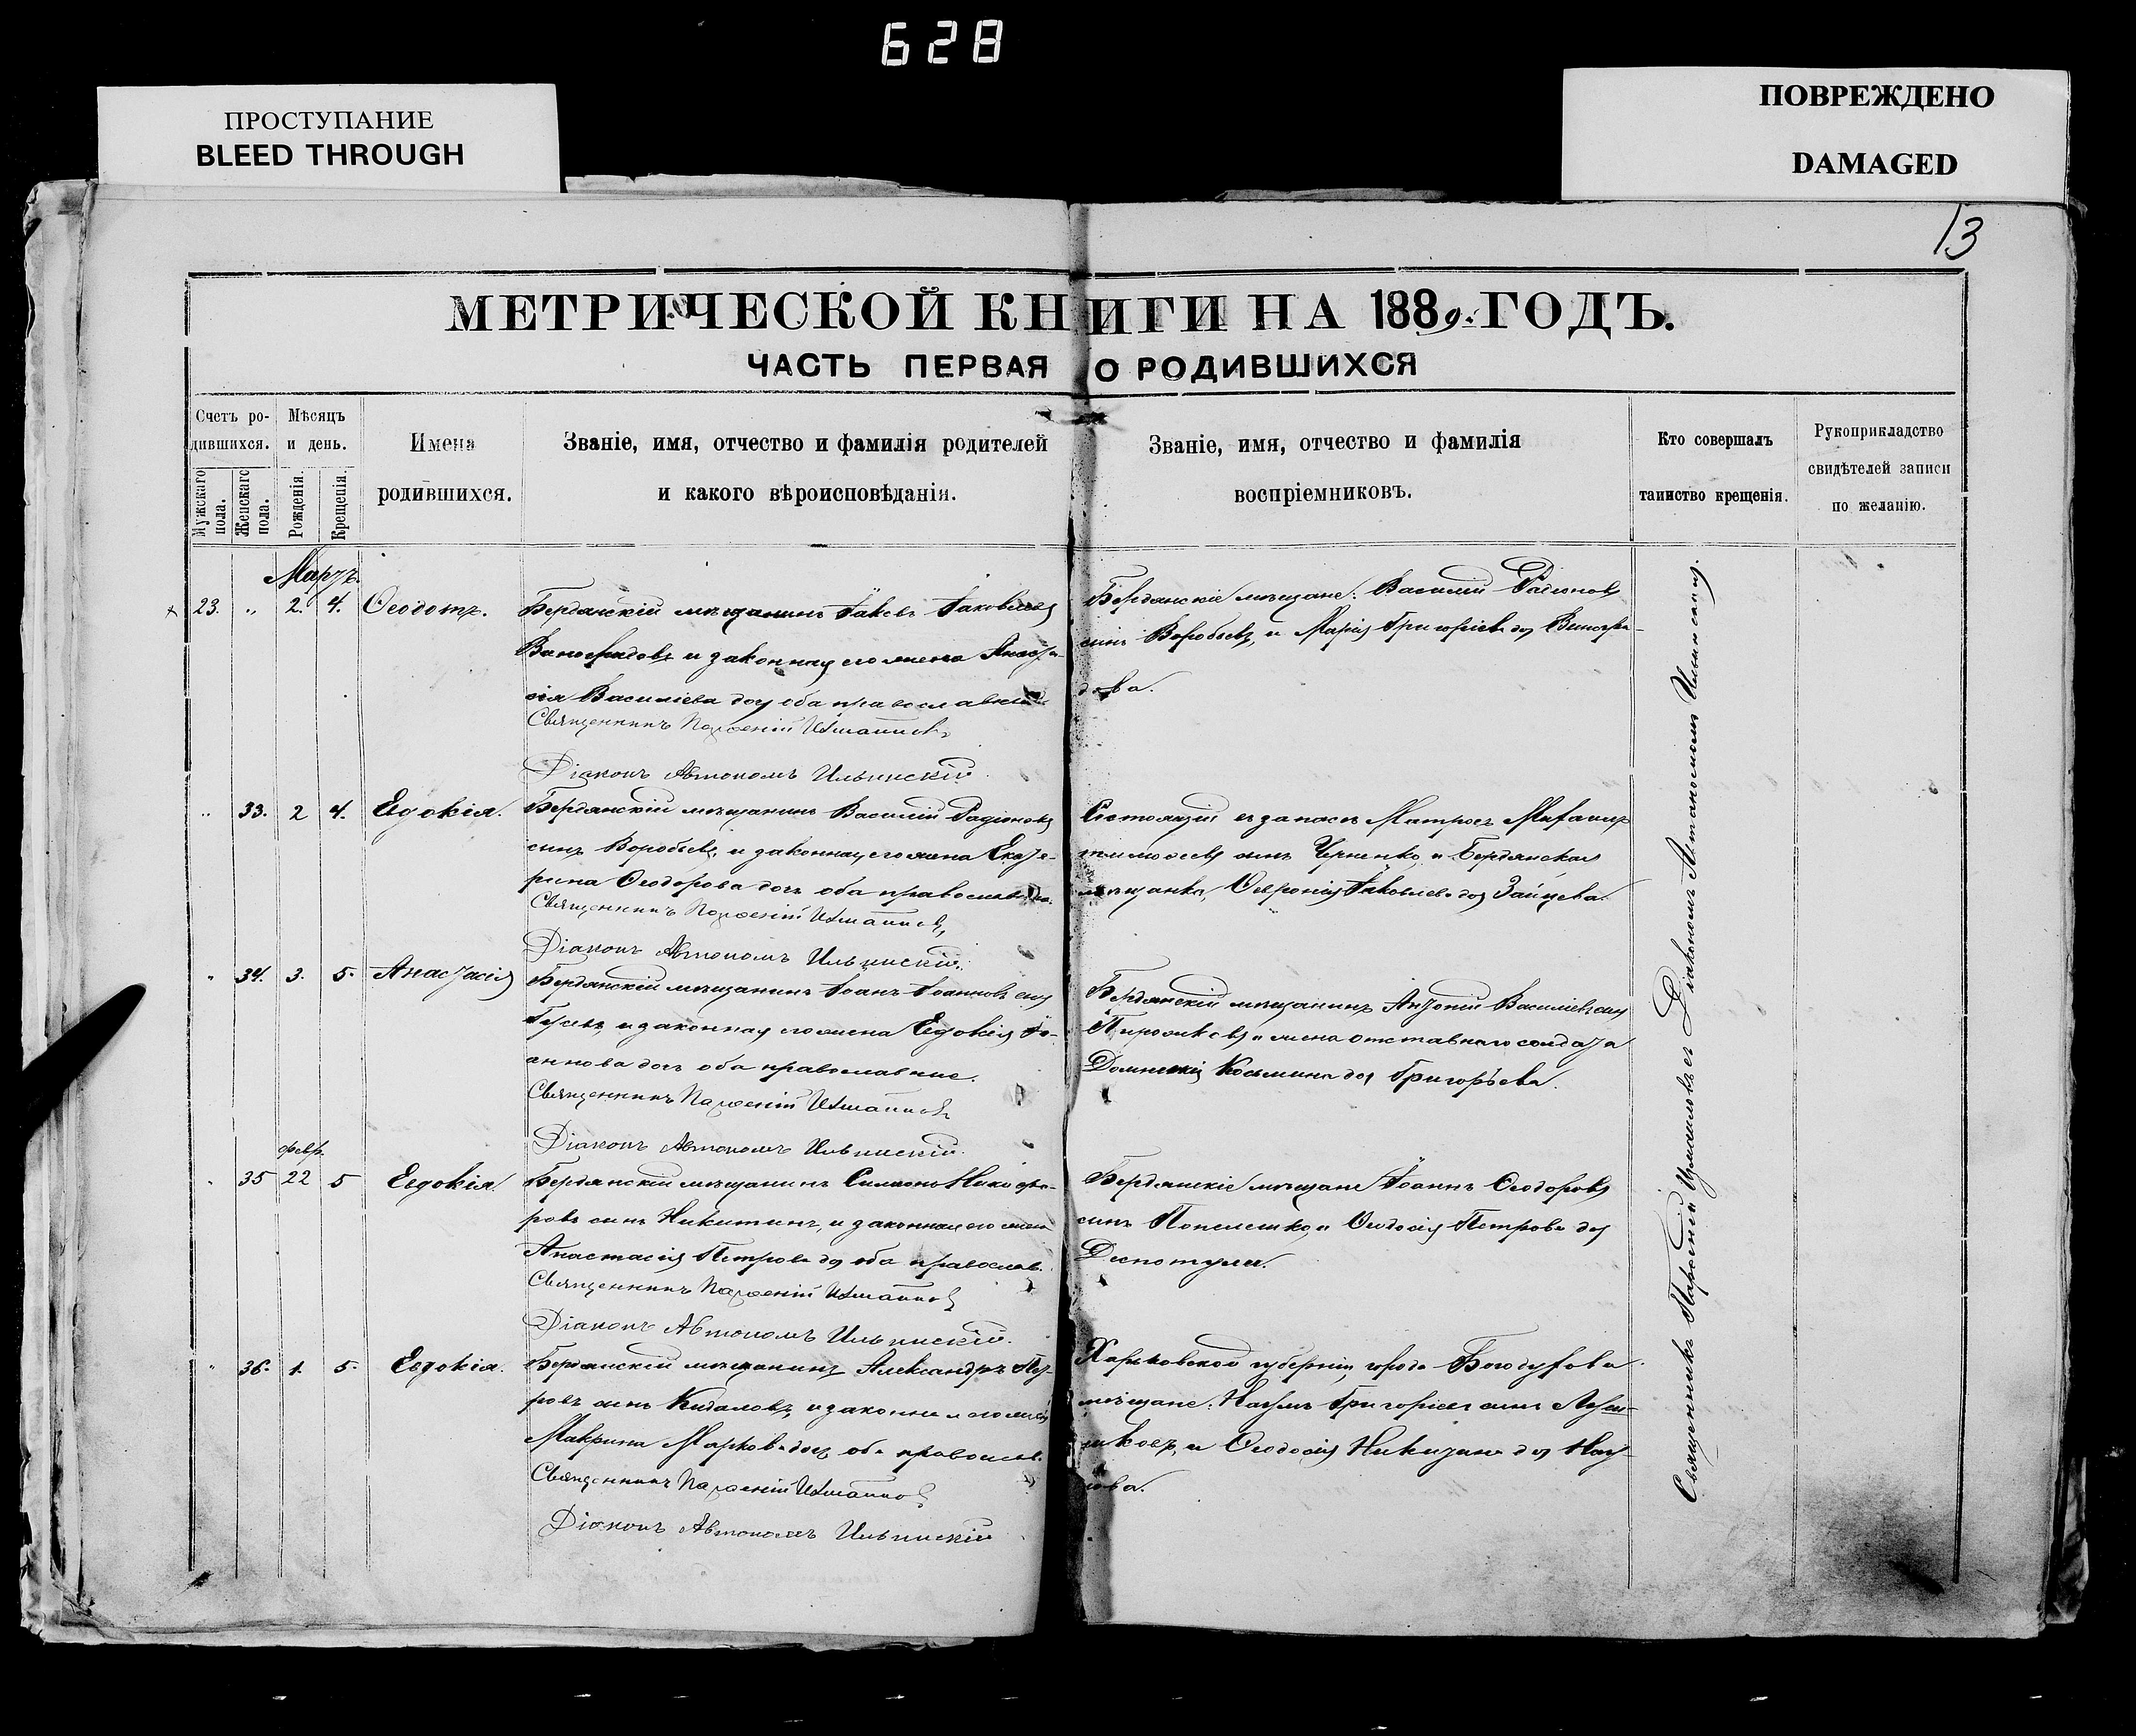 628
ПРОСТУПАНИЕ
BLEED THROUGH
ПОВРЕЖДЕНО
DAMAGED
13
МЕТРИЧЕСКОЙ КНИГИ НА 1889. ГОДЪ.
ЧАСТЬ ПЕРВАЯ О РОДИВШИХСЯ
Счетъ ро-
дившихся.
Мужскаго
пола.
Женскаго
пола.
Мѣсяцъ
и день.
Рожденія.
Крещенія.
Имена
родившихся.
Званіе, имя, отчество и фамилія родителей
и какого вѣроисповѣданія.
Званіе, имя, отчество и фамилія
воспріемниковъ.
Кто совершалъ
таинство крещенія.
Рукоприкладство
свидѣтелей записи
по желанію.
Мартъ.
23. „ 2. 4. Ѳеодотъ.
Бердянскій мѣщанинъ Іаковъ Іаковлевъ
Виноградовъ и законная его жена Анаста-
сія Василіева доч оба православные
Священникъ Парѳеній
Діаконъ Автономъ Ильинскій.
Бердянскіе мѣщане: Василій Радіоновъ
сынъ Воробьевъ, и Марія Григоріева доч Виногра-
дова.
„ 33. 2 4. Евдокія.
Бердянскій мѣщанинъ Василій Радіоновъ
сынъ Воробьевъ, и законная его жена Екате-
рина Ѳеодорова дочь оба православные.
Священникъ Парѳеній
Діаконъ Автономъ Ильинскій.
Состоящій въ запасѣ Матросъ
сынъ Черненко, и Бердянская
мѣщанка, Ѳеѵронія Іаковлева доч Зайцева.
„ 34. 3. 5. Анастасія
Бердянскій мѣщанинъ Іоанъ Іоанновъ сынъ
Гусевъ, и законная его жена Евдокія Іо-
аннова дочь оба православные.
Священникъ Парѳеній
Діаконъ Автономъ Ильинскій.
Бердянскій мѣщанинъ Антоній Василіевъ сынъ
и жена отставнаго солдата
Косьмина доч Григорьева.
февр.
„ 35 22 5 Евдокія.
Бердянскій мѣщанинъ Симеонъ Никифо-
ровъ сынъ Никитинъ, и законная его жена
Анастасія Петрова доч оба православ.
Священникъ Парѳеній
Діаконъ Автономъ Ильинскій.
Бердянскіе мѣщане Іоаннъ Ѳеодоровъ
сынъ Попелешко, и Ѳеодосія Петрова доч
Деспотули.
„ 36. 1. 5. Евдокія.
Бердянскій мѣщанинъ Александръ Пет-
ровъ сынъ Кидаловъ, и законная его жена
Макрина Маркова доч оба православ.
Священникъ Парѳеній
Діаконъ Автономъ Ильинскій
Харьковской губерніи, города Богодухова
мѣщане: Наумъ Григоріевъ сынъ
и Ѳеодосія Никитина доч
Священникъ Парѳеній съ Діакономъ Автономомъ Ильинскимъ.